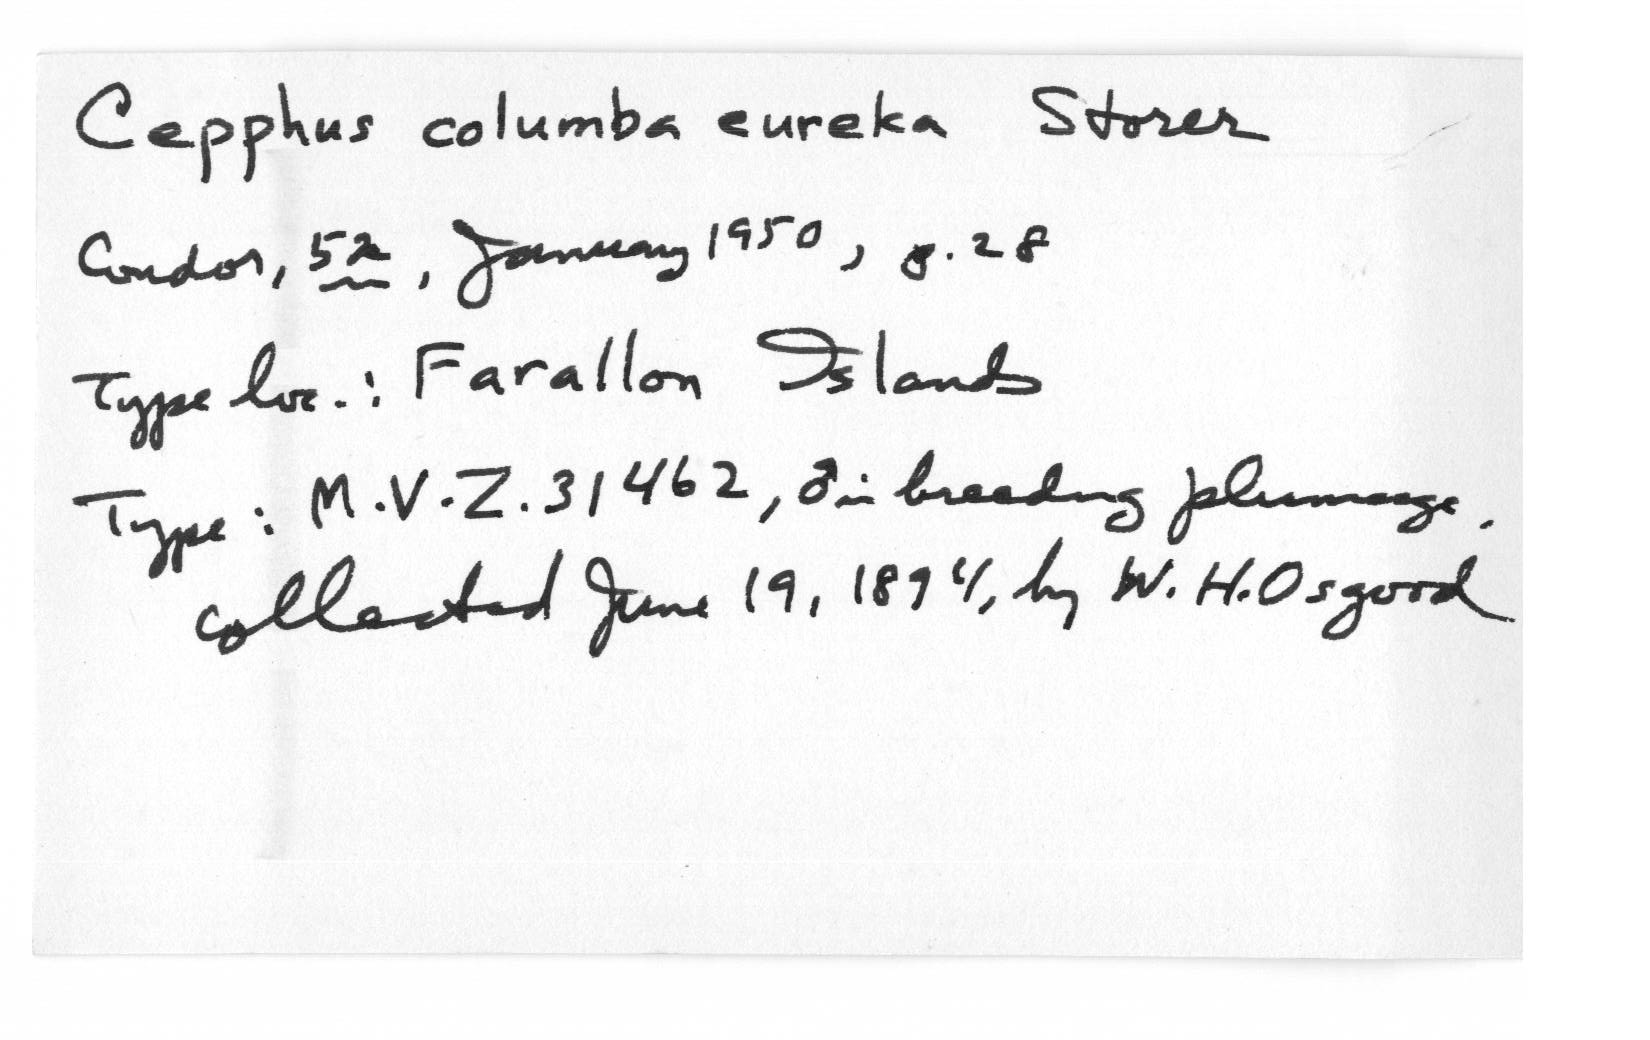 Cepphus columba eureka Storer
Condor, 52, January 1950, p. 28
Type loc.: Farallon Islands
Type: M.V.Z. 31462, ♂ in breeding plumage,
collected June 19, 1894, by W. H. Osgood